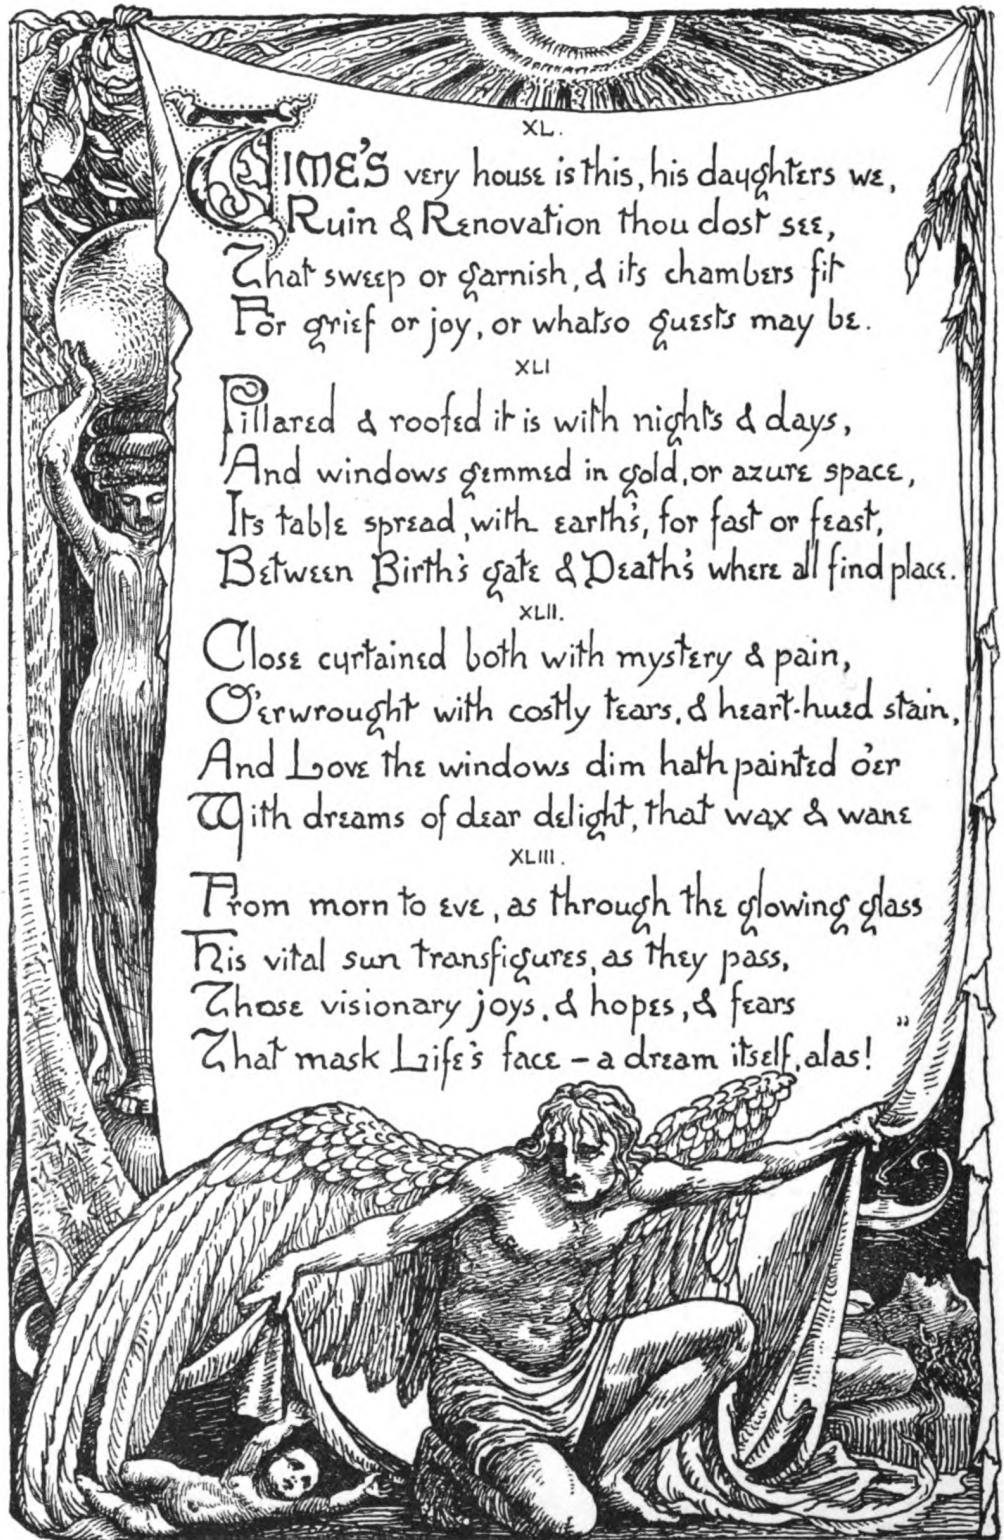 XL.
TIME'S very house is this, his daughters we,
Ruin & Renovation thou dost see,
That sweep or garnish, & its chambers fit
For grief or joy, or whatso guests may be.
XLI
Pillared & roofed it is with nights & days,
And windows gemmed in gold, or azure space,
Its table spread, with earth's, for fast or feast,
Between Birth's gate & Death's where all find place.
XLII.
Close curtained both with mystery & pain,
O'erwrought with costly tears, & heart-hued stain,
And Love the windows dim hath painted o'er
With dreams of dear delight, that wax & wane
XLIII.
From morn to eve, as through the glowing glass
His vital sun transfigures, as they pass,
Those visionary joys, & hopes, & fears
That mask Life's face – a dream itself, alas! "